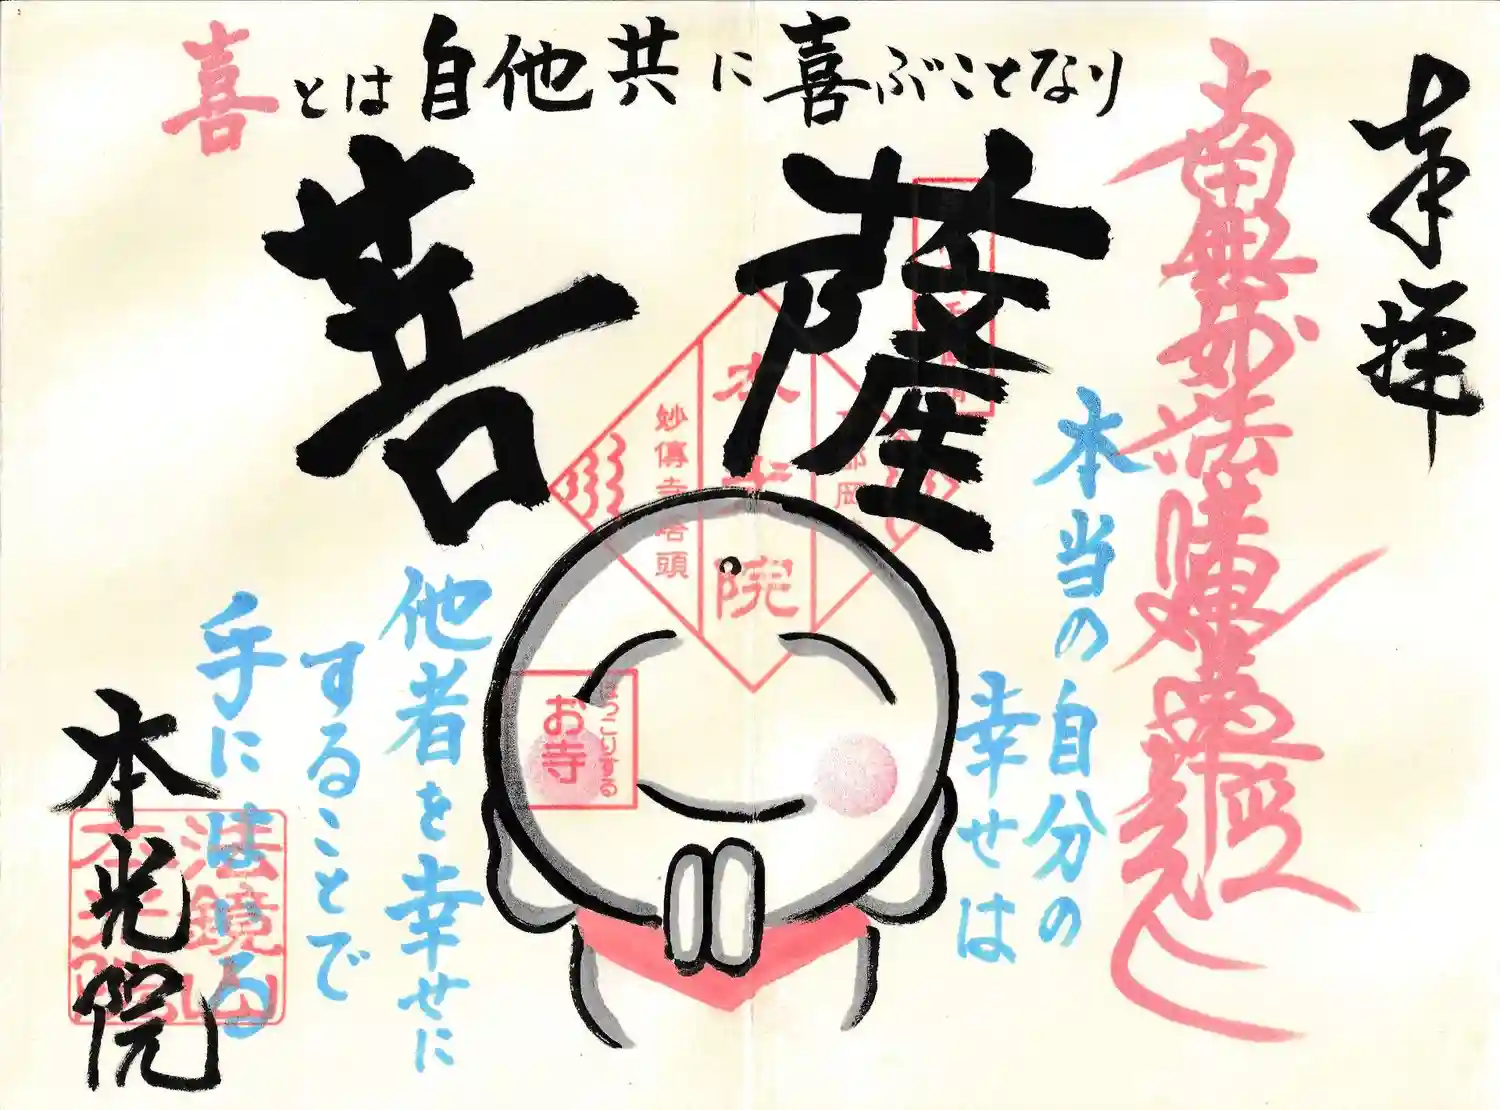 奉拝
南無妙法蓮華経
喜とは自他共に喜ぶことなり
菩薩
本当の自分の
幸せは
他者を幸せに
することで
手にはいる
本光院
本光院
妙傳寺塔頭
お寺
法鏡山
本光院